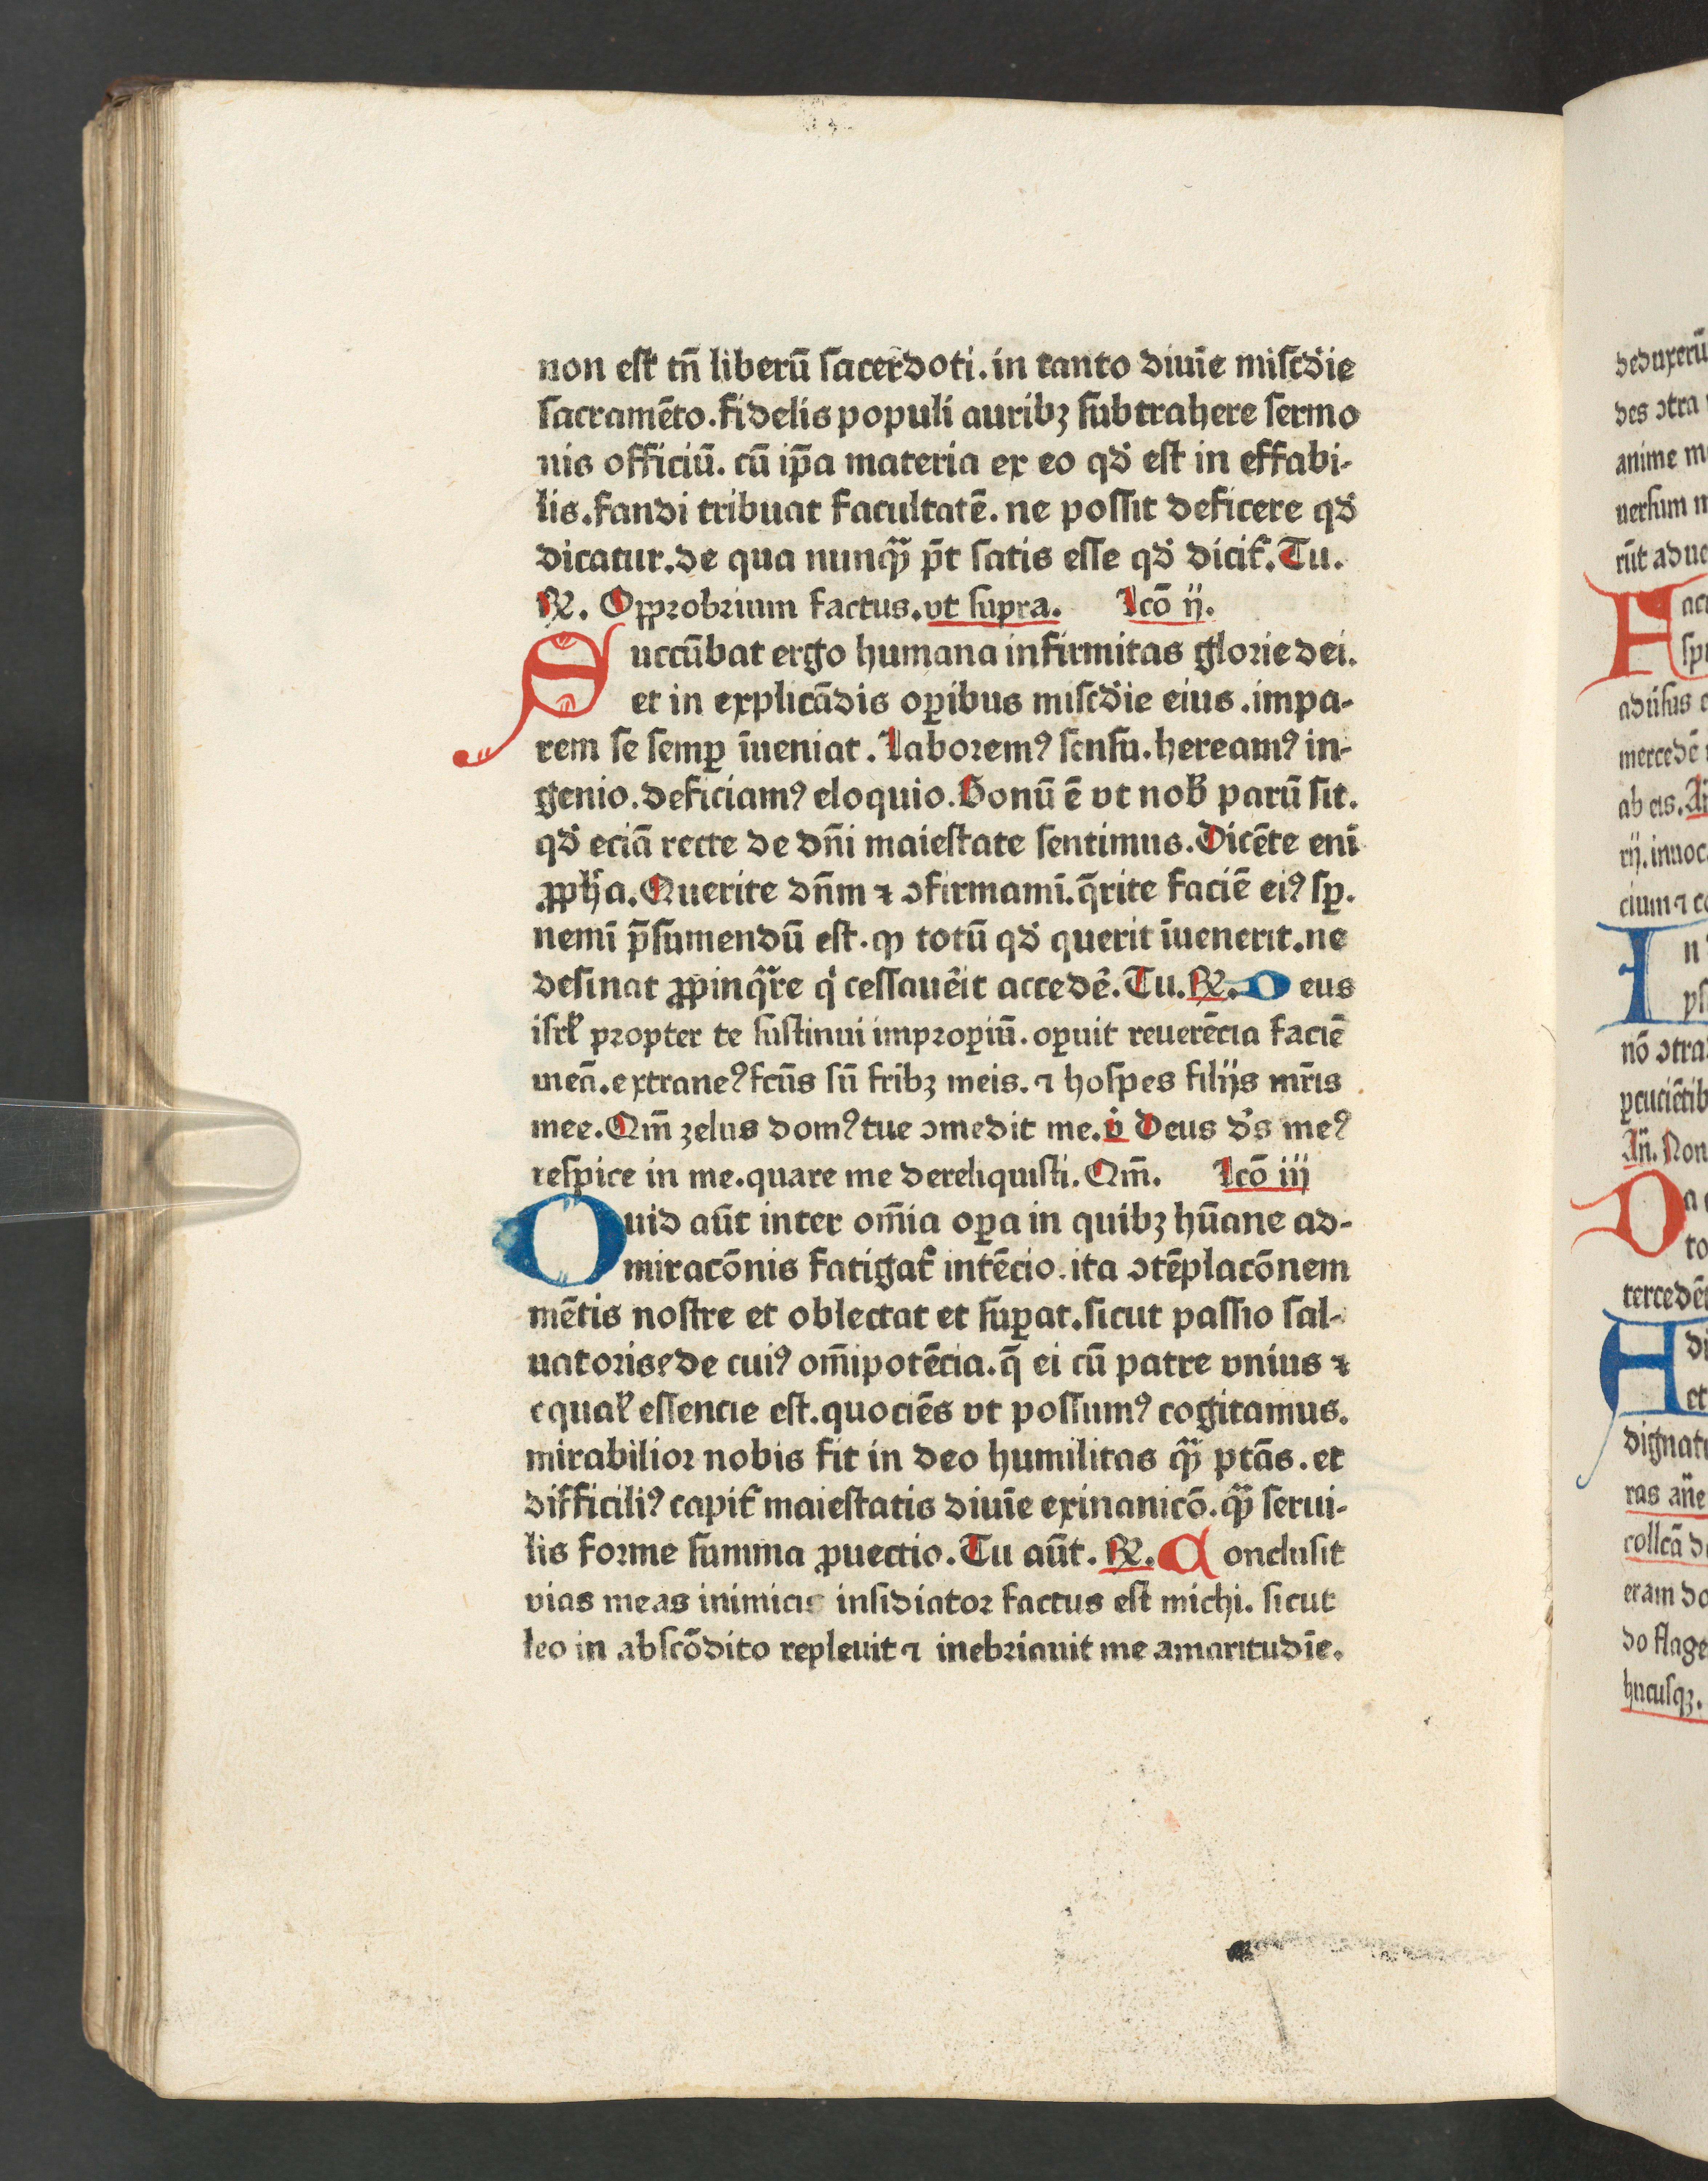 non est tn̄ liberū sacerdoti. in tanto diuīe misc̄die
sacramēto. fidelis populi auribꝫ subtrahere sermo
nis officiū. cū ip̄a materia ex eo qd̄ est in effabi-
lis. fandi tribuat facultatē. ne possit deficere qd̄
dicatur. de qua nunqͣ̄ pt̄ satis esse qd̄ dicit᷑. Tu.
℞. Opprobrium factus. vt supra. Lcō ij.
Succūbat ergo humana infirmitas glorie dei.
et in explicādis oꝑibus misc̄die eius. impa-
rem se semꝑ īueniat. Laboremꝰ sensu. hereamꝰ in-
genio. deficiamꝰ eloquio. Bonū ē vt nob̄ parū sit.
qd̄ eciā recte de dn̄i maiestate sentimus. Dicēte enī
ꝓpħa. Querite dn̄m ⁊ ꝯfirmamī. q̄rite faciē eiꝰ sꝑ.
nemī p̄sumendū est. ꝙ totū qd̄ querit īuenerit. ne
desinat ꝓpinqͣ̄re qͥ cessau̓it accedē. Tu. ℞. Deus
isrl̄ propter te sustinui improꝑiū. oꝑuit reuerēcia faciē
meā. extraneꝰ fcūs sū frībꝫ meis. ⁊ hospes filijs mr̄is
mee. Qm̄ zelus domꝰ tue ꝯmedit me. v̓ Deus d̓s meꝰ
respice in me. quare me dereliquisti. Qm̄. Lcō iij
Quid aūt inter om̄ia oꝑa in quibꝫ hūane ad-
miracōnis fatigat᷑ intēcio. ita ꝯtēplacōnem
mētis nostre et oblectat et suꝑat. sicut passio sal-
uatoris. de cuiꝰ om̄ipotēcia. q̄ ei cū patre vnius ⁊
equal̄ essencie est. quociēs vt possumꝰ cogitamus.
mirabilior nobis fit in deo humilitas qͣ̄ ptās. et
difficiliꝰ capit᷑ maiestatis diuīe exinanicō. qͣ̄ serui-
lis forme summa ꝓuectio. Tu aūt. ℞. Conclusit
vias meas inimicus insidiator factus est michi. sicut
leo in abscōdito repleuit ⁊ inebriauit me amaritudīe.